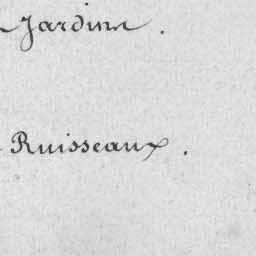 Jardins.
Ruisseaux.